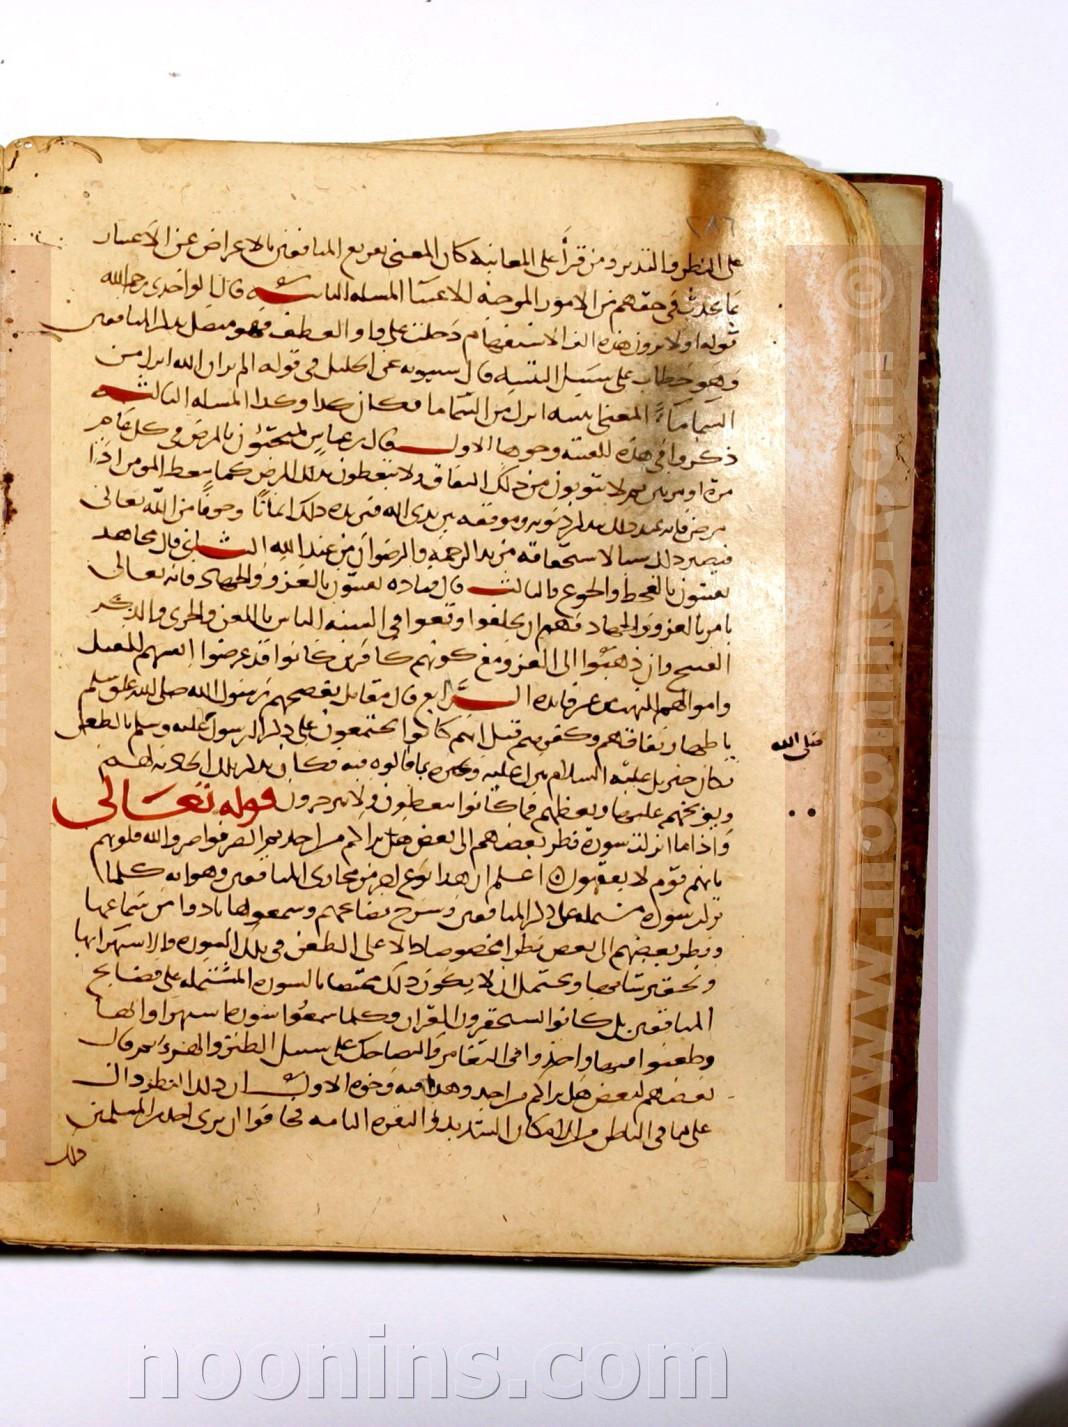 على النظر والتدبر ومن قرأ على المعاينة كان المعنى تقريع المنافقين بالاعراض عن الاعتبار
بما يحدث في حقهم من الامور الموجبة للاعتبار المسلة الثانية قال الواحدي رحمه الله
قوله اولا يرون هذه الف الاستفهام دخلت على واو العطف فهو متصل بذكر المنافقين
وهو خطاب على سبيل التنبيه قال سيبويه عن الخليل في قوله الم تر ان الله انزل من
السما ماءً المعنى انتبه انزل من السما ما فكان كذا وكذا المسلة الثالثة
ذكروا في هذه الفتنة وجوها الاول قال ابن عباس يمتحنون بالمرض في كل عام
مرة او مرتين ثم لا يتوبون من ذلك النفاق ولا يتعظون بذلك المرض كما يتعظ المومن اذا
مرض فانه عند ذلك يتذكر ذنوبه وموقفه بين يدي الله فيزيده ذلك ايمانا وخوفا من الله تعالى
فيصير ذلك سببا لاستحقاقه مزيد الرحمة والرضوان من عند الله الثاني قال مجاهد
يفتنون بالقحط والجوع والثالث قال قتادة يفتنون بالغزو والجهاد فانه تعالى
يامر بالغزو والجهاد فهم ان تخلفوا وقعوا في السنة الناس باللعن والخزي والذكر
القبيح وان ذهبوا الى الغزو مع كونهم كافرين كانوا قد عرضوا انفسهم للقتل
واموالهم للنهب من غير فايدة الرابع قال مقاتل يفضحهم رسول الله صلى الله عليه وسلم
باظهار نفاقهم وكفرهم قيل انهم كانوا يجتمعون على ذكر الرسول عليه وسلم بالطعن
فكان جبريل عليه السلام ينزل عليه ويخبره بما قالوه فيه فكان يذكر تلك الحادثة لهم
ويوبخهم عليها ويعظهم فما كانوا يتعظون ولا ينزجرون قوله تعالى
واذا ما انزلت سورة نظر بعضهم الى بعض هل يراكم من احد ثم انصرفوا صرف الله قلوبهم
بانهم قوم لا يفقهون اعلم ان هذا نوع اخر من مخازي المنافقين وهو انه كلما
نزلت سورة مشتملة على ذكر المنافقين وشرح فضائحهم وسمعوها تاذوا من سماعها
ونظر بعضهم الى بعض نظرا مخصوصا دالا على الطعن في تلك السورة والاستهزا بها
وتحقير شانها ويحتمل ان لا يكون ذلك مختصا بالسورة المشتملة على فضايح
المنافقين بل كانوا يستحقرون القران وكلما سمعوا سورة استهزاوا بها
وطعنوا فيها واخذوا في التغامز والتضاحك على سبيل الطنز والهزء ثم قال
بعضهم لبعض هل يراكم من احد وهذا فيه وجوه الاول ان ذلك النظر دال
على ما في الباطن من الانكار الشديد والنفرة التامة فخافوا ان يرى احد من المسلمين
ذلك
صلى الله
www.noonins.com ©
noonins.com